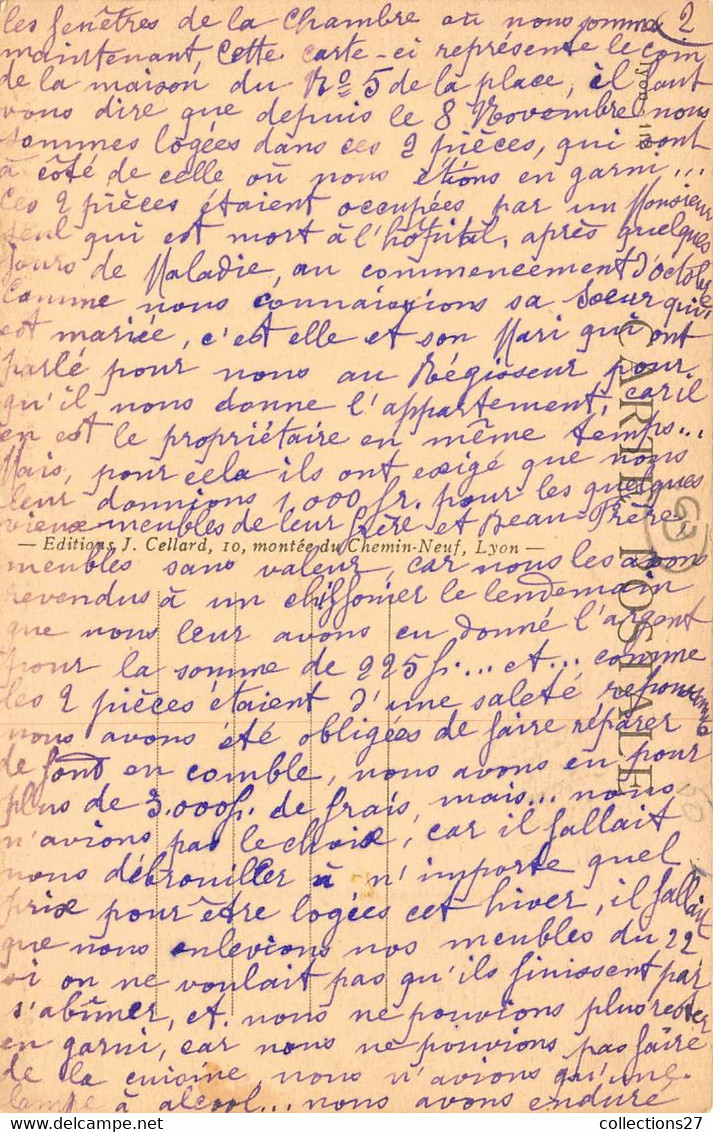 2
les fenêtres de la Chambre où nous sommes
maintenant, Cette carte-ci représente le com
de la maison du No 5 de la place, il faut
vous dire que depuis le 8 Novembre nous
sommes logées dans ces 2 pièces, qui sont
à côté de celle où nous étions en garni...
Ces 2 pièces étaient occupées par un Monsieur
seul qui est mort à l'hôpital, après quelques
jours de Maladie, au commencement d'octobre
Comme nous connaissions sa Soeur qui
est mariée, c'est elle et son Mari qui ont
parlé pour nous au Régisseur pour
qu'il nous donne l'appartement, car il
en est le propriétaire en même temps...
Mais, pour cela ils ont exigé que nous
leur donnions 1,000 fr. pour les quelques
vieux meubles de leur frère et Beau-Frère,
— Editions J. Cellard, 10, montée du Chemin-Neuf, Lyon —
meubles sans valeur, car nous les avons
revendus à un chiffonier le lendemain
que nous leur avons eu donné l'argent
pour la somme de 225 f... et... comme
les 2 pièces étaient d'une saleté repoussante
nous avons été obligées de faire réparer
de fond en comble, nous avons eu pour
plus de 3.000 f. de frais, mais... nous
n'avions pas le choix, car il fallait
nous débrouiller à n'importe quel
prix pour être logées cet hiver, il fallait
que nous enlevions nos meubles du 22
si on ne voulait pas qu'ils finissent par
s'abîmer, et nous ne pouvions plus rester
en garni, car nous ne pouvions pas faire
de la cuisine, nous n'avions qu'une
lampe à alcool... nous avons enduré
CARTE POSTALE
Lyon
collections27